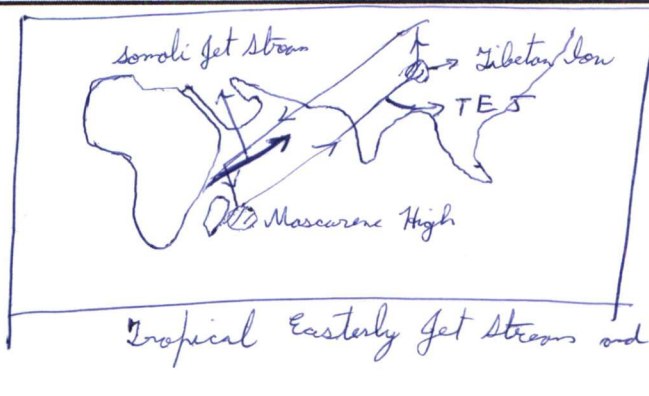 Somali Jet Stream
Tibetan low
TEJ
Mascarene High
Tropical Easterly Jet Stream and